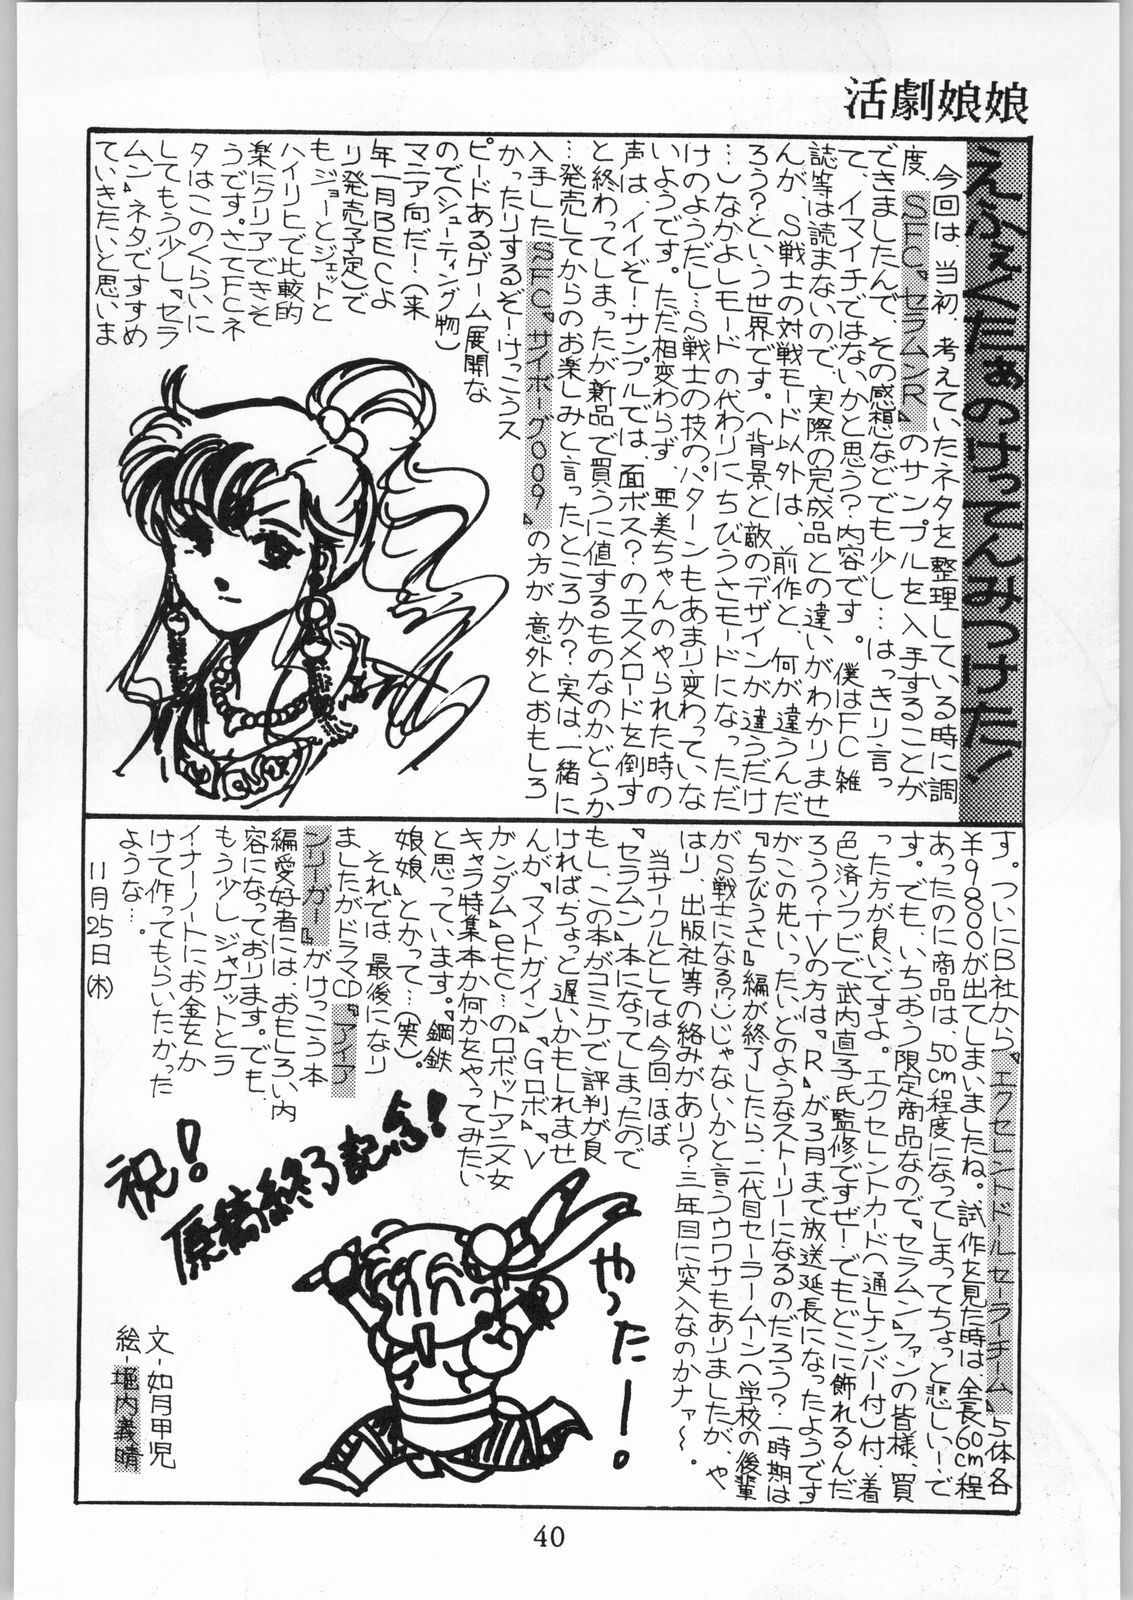 活劇娘娘
えふぇくたぁのけってんみつけたっ!
今回は、当初、考えていたネタを整理している時に調
度、『SFC『セラムンR』のサンプルを入手することが
できましたんで、その感想などでも少し…はっきり言っ
て、イマイチではないかと思う?内容です。僕はFC雑
誌等は読まないので、実際の完成品との違いがわかりませ
んが、S戦士の対戦モード以外は、前作と、何が違うんだ
ろう?という世界です。(背景と敵のデザインが違うだけ
…)なかよしモードの代わりにちびうさモードになっただ
けのようだし…S戦士の技のパターンもあまり変わっていな
いようです。ただ相変わらず、亜美ちゃんのやられた時の
声は、イイぞ!サンプルでは、面ボス?のエスメロードを倒す
と終わってしまったが新品で買うに値するものなのかどうか
…発売してからのお楽しみと言ったところか?実は、一緒に
入手したSFC『サイボーグ009』の方が、意外とおもしろ
かったりするぞーけっこうス
ピードあるゲーム展開な
ので(シューティング物)
マニア向だ!(来
年一月BECよ
り発売予定)で
もジョーとジェットと
ハイリヒで比較的
楽にクリアできそ
うです。さてFCネ
タはこのくらいに
してもう少し『セラ
ムン』ネタですすめ
ていきたいと思いま
す。ついにB社から『エクセレントドールセーラーチーム』5体各
¥9800が出てしまいましたね。試作を見た時は、全長60cm程
あったのに商品は、50cm程度になってしまってちょっと悲しいーで
す。でも、いちおう限定商品なので、『セラムン』ファンの皆様、買
った方が良いですよ。エクセレントカード(通しナンバー付)付、着
色済ソフビで武内直子氏監修ですぜーでもどこに飾れるんだ
ろう?TVの方は、『R』が3月まで放送延長になったようです
がこの先いったいどのようなストーリーになるのだろう?一時期は
『ちびうさ』編が終了したら、二代目セーラームーン(学校の後輩
がS戦士になる?)じゃないかと言うウワサもありましたが、や
はり、出版社等の絡みがあり?三年目に突入なのかナァ〜。
当サークルとしては今回、ほぼ
『セラムン』本になってしまったので
もし、この本がコミケで評判が良
ければ、ちょっと遅いかもしれませ
んが、『マイトガイン』、『Gロボ』、『V
ガンダム』etc…のロボットアニメ女
キャラ特集本か何かをやってみたい
と思っています。『鋼鉄
娘娘』とかって…(笑)。
それでは、最後になり
ましたがドラマCD『アイア
ンリーガー』がけっこう本
編愛好者には、おもしろい内
容になっております。でも、
もう少しジャケットとラ
イナーノートにお金をか
けて作ってもらいたかった
ような…。
11月25日(木)
祝!
原稿終了記念!
やったー!
文ー如月甲児
絵ー堀内義晴
40